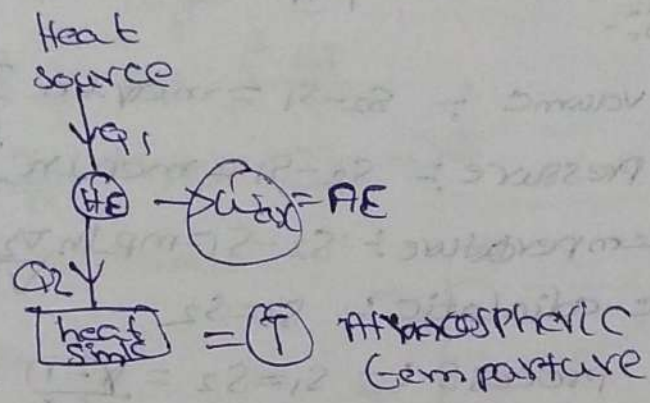 Heat
source
Q1
HE → Wmax = AE
Q2
heat
sink = T Atmospheric
temparture